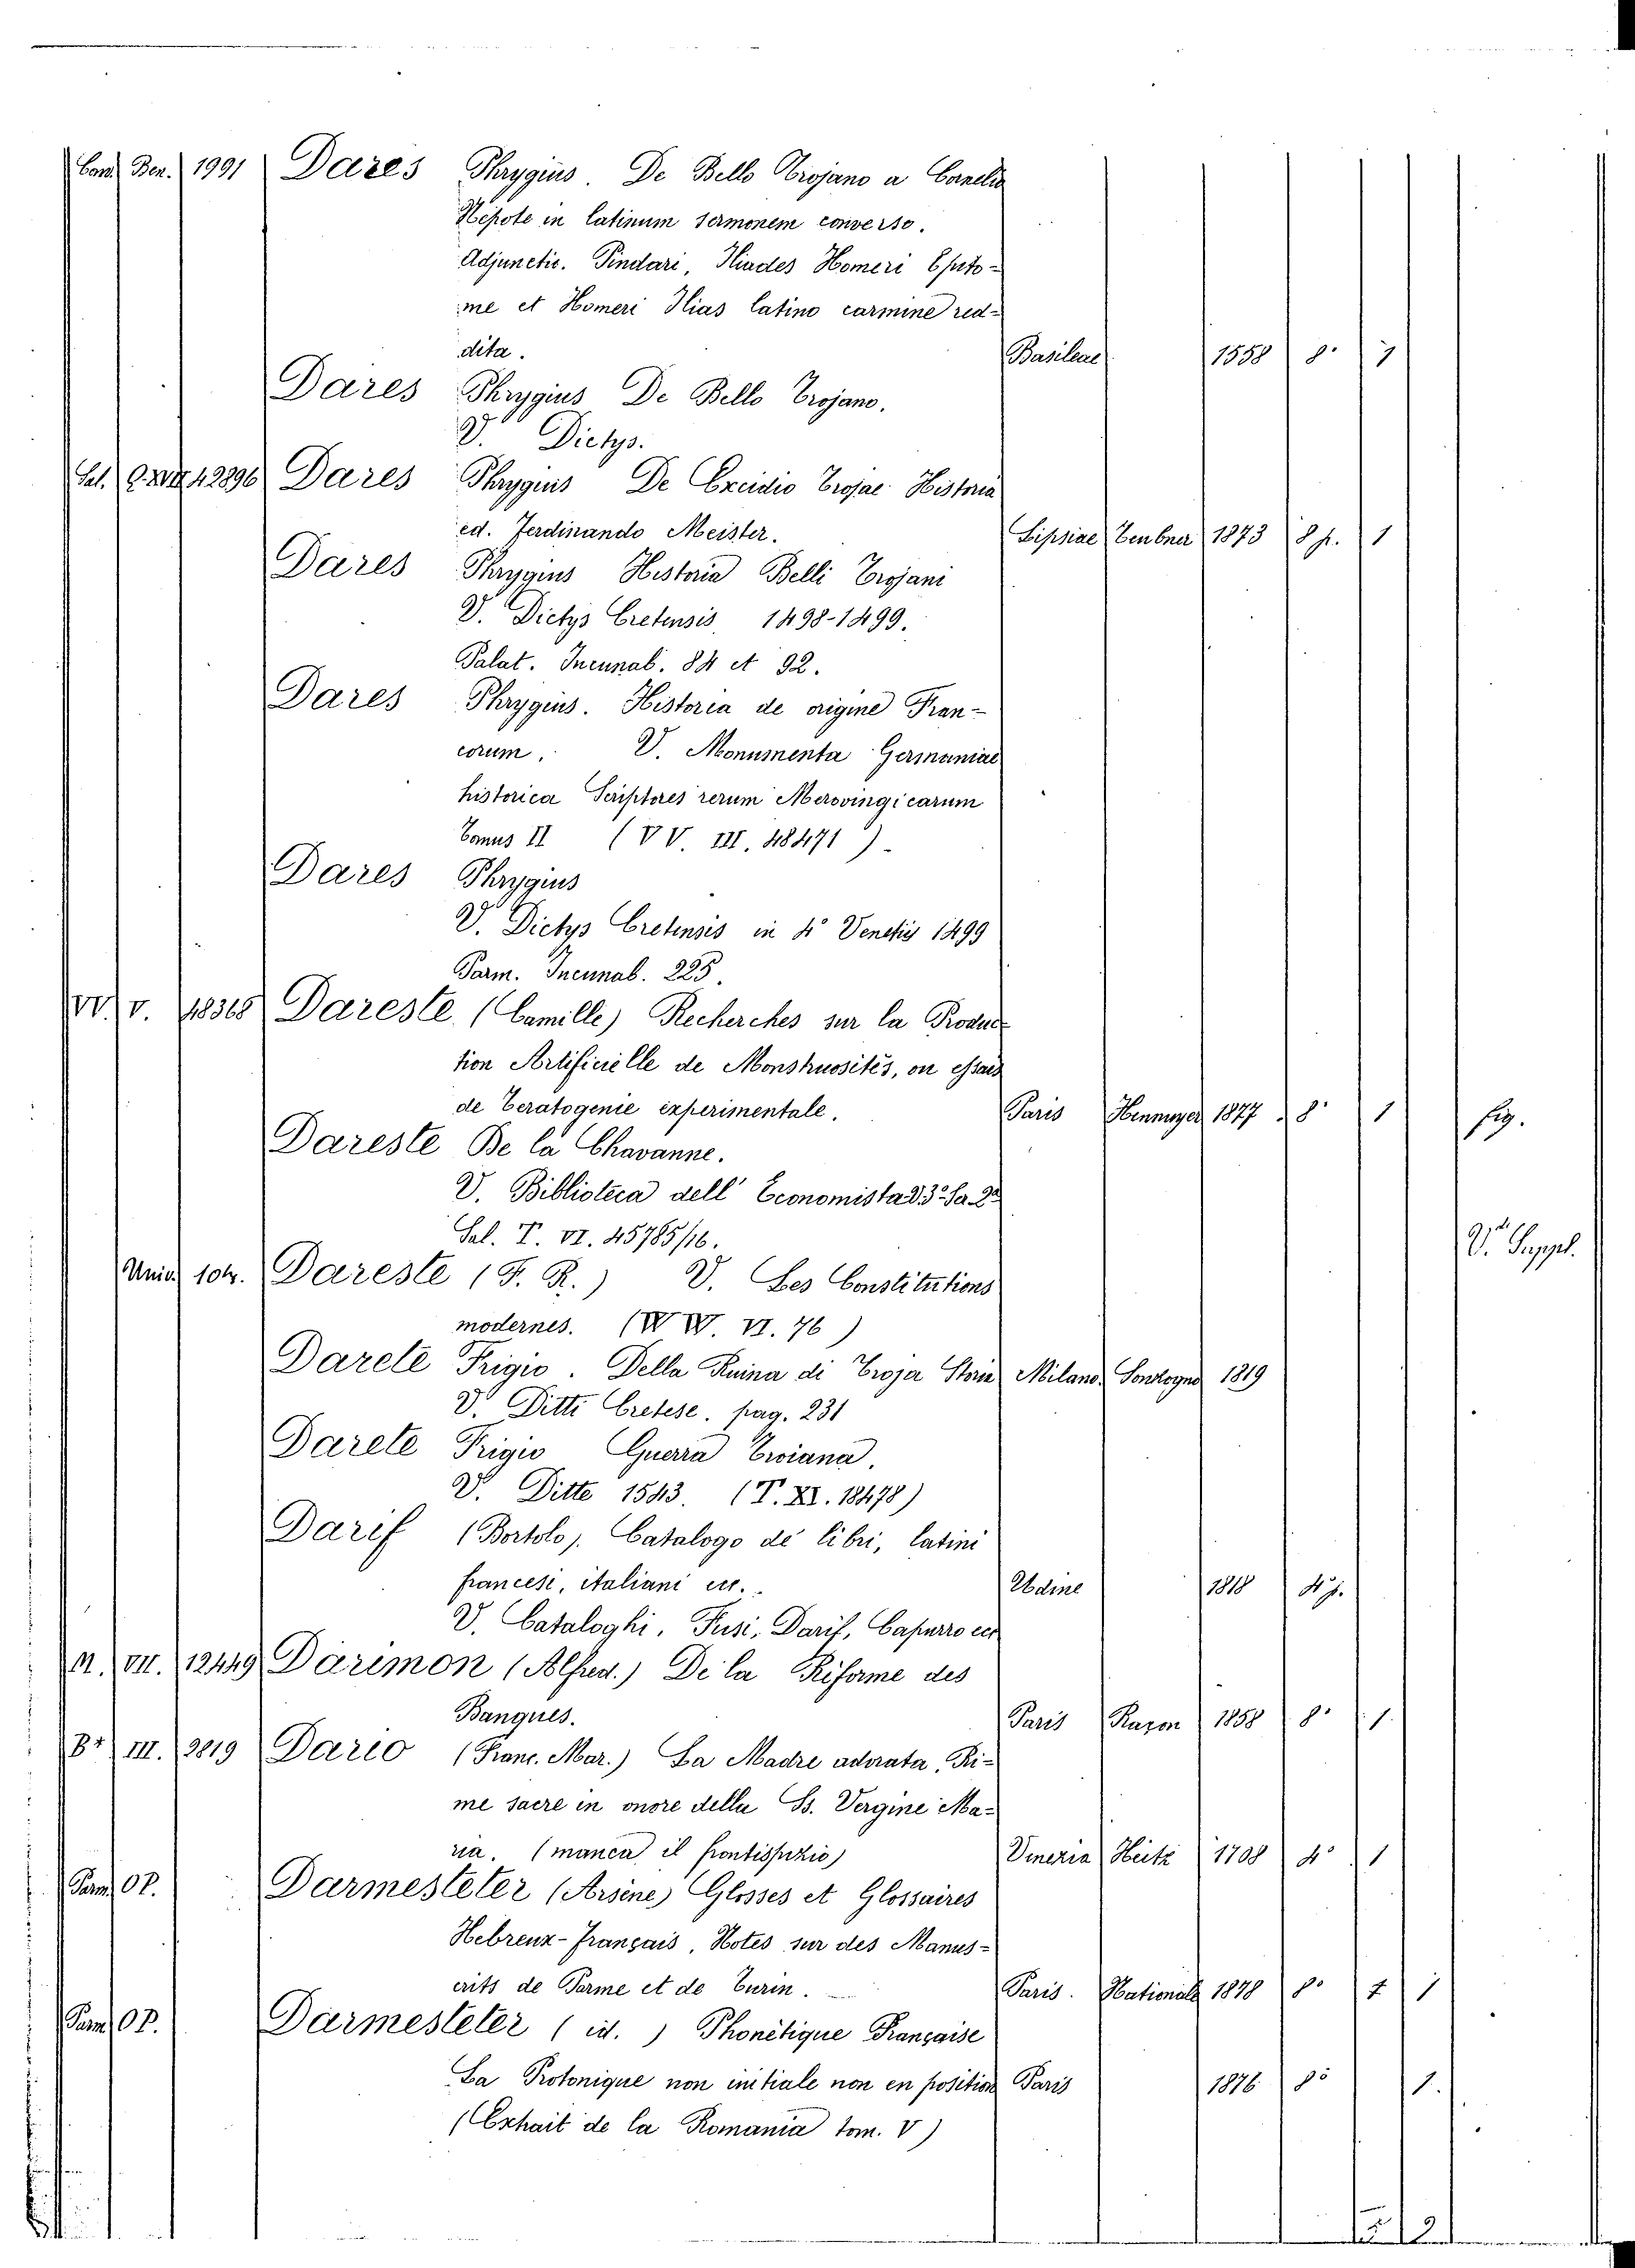 Ben. 1991 Dares Phrygius. De Bello Trojano a Cornelio
Nepote in latinum sermonem converso.
Adjunctis. Pindari, Iliades Homeri Epito-
me et Homeri Ilias latino carmine red-
dita. Basileae 1558 8°
Dares Phrygius De Bello Trojano.
V. Dictys.
Sal. 42896 Dares Phrygius De Excidio Trojae Historia
ed. Ferdinando Meister. Lipsiae Teubner 1873 8 p. 1
Dares Phrygius Historia Belli Trojani
V. Dictys Cretensis 1498-1499.
Palat. Incunab. 84 et 92.
Dares Phrygius. Historia de origine Fran-
corum. V. Monumenta Germaniae
historica Scriptores rerum Merovingicarum
Tomus II (VV. III. 48471)
Dares Phrygius
V. Dictys Cretensis in 4° Venetiis 1499
Parm. Incunab. 225.
V. 48368 Dareste (Camille) Recherches sur la Produc-
tion Artificielle de Monstruosités, ou essais
de Teratogenie experimentale. Paris Hennuyer 1877 8° 1 fig.
Dareste De la Chavanne.
V. Biblioteca dell' Economista
Sal. T. VI. 45785/16. V. Suppl.
Univ. 104. Dareste (F. R.) V. Les Constitutions
modernes. (W W. VI. 76)
Darete Frigio. Della Ruina di Troja Storia Milano. Sonzogno 1819
V. Ditti Cretese. pag. 231
Darete Frigio Guerra Troiana.
V. Ditte 1543. (T. XI. 18478)
Darif (Bortolo). Catalogo de libri, latini
francesi, italiani ecc. Udine 1818 4°
V. Cataloghi, Fusi, Darif, Capurro ecc
VII. 12449 Darimon (Alfred.) De la Riforme des
Banques. Paris 1858 8° 1.
B* III. 2819 Dario (Franc. Mar.) La Madre adorata, Ri-
me sacre in onore della SS. Vergine Ma-
ria. (manca il frontispizio) Venezia Heitz 1708 4° 1
Parm. Darmesteter (Arsène) Glosses et Glossaires
Hebreux-français, Notes sur des Manus-
crits de Parme et de Turin. Paris. Nationale 1878 8° 1
Parm. Darmesteter (id.) Phonétique Française
La Protonique non initiale non en position Paris 1876 8° 1.
(Extrait de la Romania tom. V)